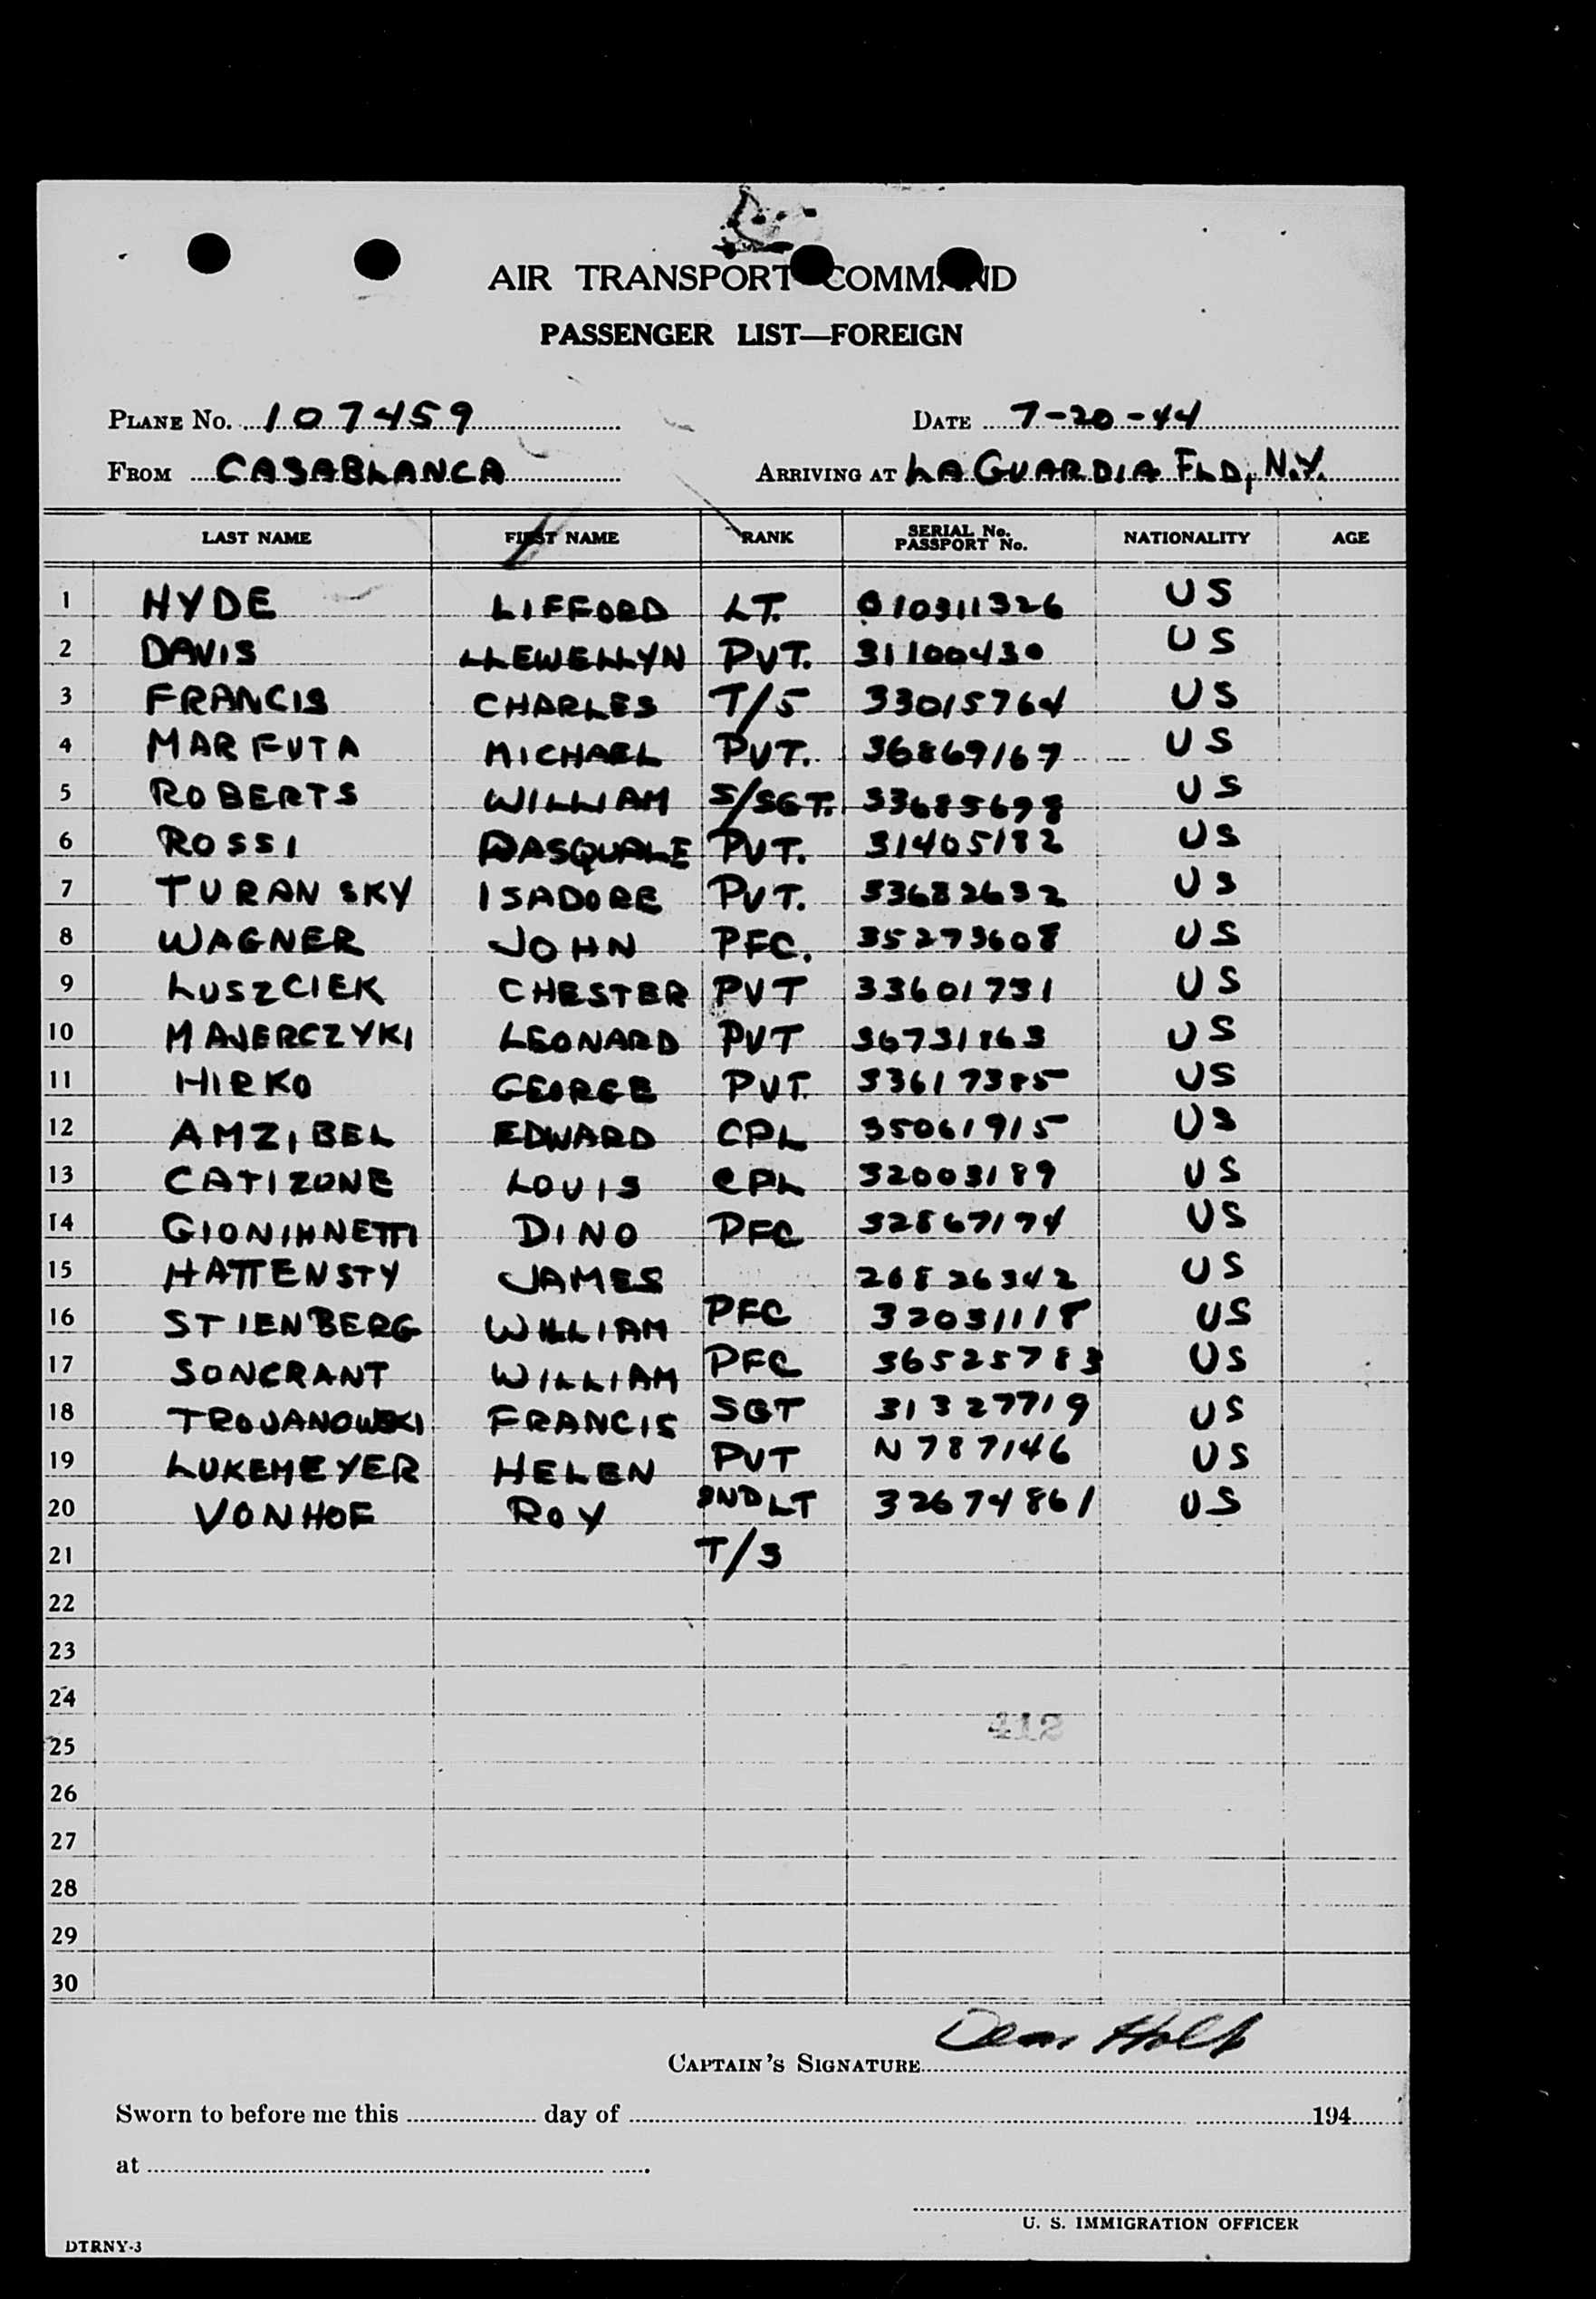 AIR TRANSPORT COMMAND
PASSENGER LIST—FOREIGN
PLANE No. 107459 DATE 7-20-44
FROM CASABLANCA ARRIVING AT LA GUARDIA FLD, N.Y.
LAST NAME FIRST NAME RANK SERIAL No. PASSPORT No. NATIONALITY AGE
1 HYDE LIFFORD LT. 010311326 US
2 DAVIS LLEWELLYN PVT. 31100430 US
3 FRANCIS CHARLES T/5 33015764 US
4 MARFUTA MICHAEL PVT. 36869167 US
5 ROBERTS WILLIAM S/SGT. 33685698 US
6 ROSSI PASQUALE PVT. 31405182 US
7 TURANSKY ISADORE PVT. 33682632 US
8 WAGNER JOHN PFC. 35273608 US
9 LUSZCIEK CHESTER PVT 33601731 US
10 MAJERCZYKI LEONARD PVT 36731863 US
11 HIRKO GEORGE PVT. 33617385 US
12 AMZIBEL EDWARD CPL 35061915 US
13 CATIZONE LOUIS CPL 32003189 US
14 GIONIHNETTI DINO PFC 32867174 US
15 HATTENSTY JAMES 20826342 US
16 STIENBERG WILLIAM PFC 32031118 US
17 SONCRANT WILLIAM PFC 36525783 US
18 TROJANOWSKI FRANCIS SGT 31327719 US
19 LUKEMEYER HELEN PVT N787146 US
20 VONHOF ROY 2ND LT 32674861 US
21 T/3
22
23
24
25
26
27
28
29
30
CAPTAIN'S SIGNATURE Dean Holt
Sworn to before me this day of 194
at
U. S. IMMIGRATION OFFICER
DTRNY-3